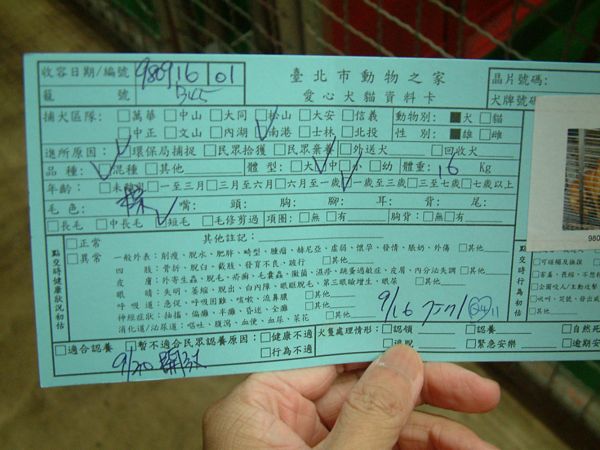 收容日期/編號 980916 01 臺北市動物之家 晶片號碼:
籠 號 B45 愛心犬貓資料卡 犬牌號碼
捕犬區隊: □萬華 □中山 □大同 □松山 □大安 □信義 動物別: ■犬 □貓
□中正 □文山 □內湖 □南港 □士林 □北投 性 別: ■雄 □雌
進所原因: □環保局捕捉 □民眾拾獲 □民眾棄養 □外送犬 □回收犬
品 種: □混種 □其他 體 型: □大 □中 □小 □幼 體重: 16 Kg
年齡: □未 □一至三月 □三月至六月 □六月至一歲 □一歲至三歲 □三至七歲 □七歲以上
毛 色: 嘴: 頭: 胸: 腳: 耳: 背: 尾:
□長毛 □中長毛 □短毛 □毛修剪過 項圈: □無 □有 胸背: □無 □有
點交時健康狀況初估
□正常 其他註記:
□異常 一般外表: 削瘦、脫水、肥胖、畸型、腫瘤、赫尼亞、虛弱、懷孕、發情、脹奶、外傷 □其他
四 肢: 骨折、脫臼、截肢、發育不良、跛行 □其他
皮 膚: 外寄生蟲、脫毛、疥癬、毛囊蟲、黴菌、濕疹、跳蚤過敏症、皮膚、內分泌失調 □其他
眼 睛: 失明、萎縮、脫出、白內障、眼瞼脫毛、第三眼瞼增生、眼屎 □其他
呼 吸 道: 急促、呼吸困難、咳嗽、流鼻膿 □其他
神經症狀: 抽搐、偏癱、半癱、昏迷、全癱 □其他
消化道/泌尿道: 嘔吐、腹瀉、血便、血尿、尿花 □其他
9/16
□適合認養 □暫不適合民眾認養原因: □健康不適 犬隻處理情形: □認領 □認養 □自然死
□行為不適 □逃脫 □緊急安樂 □逾期安
9/20
980